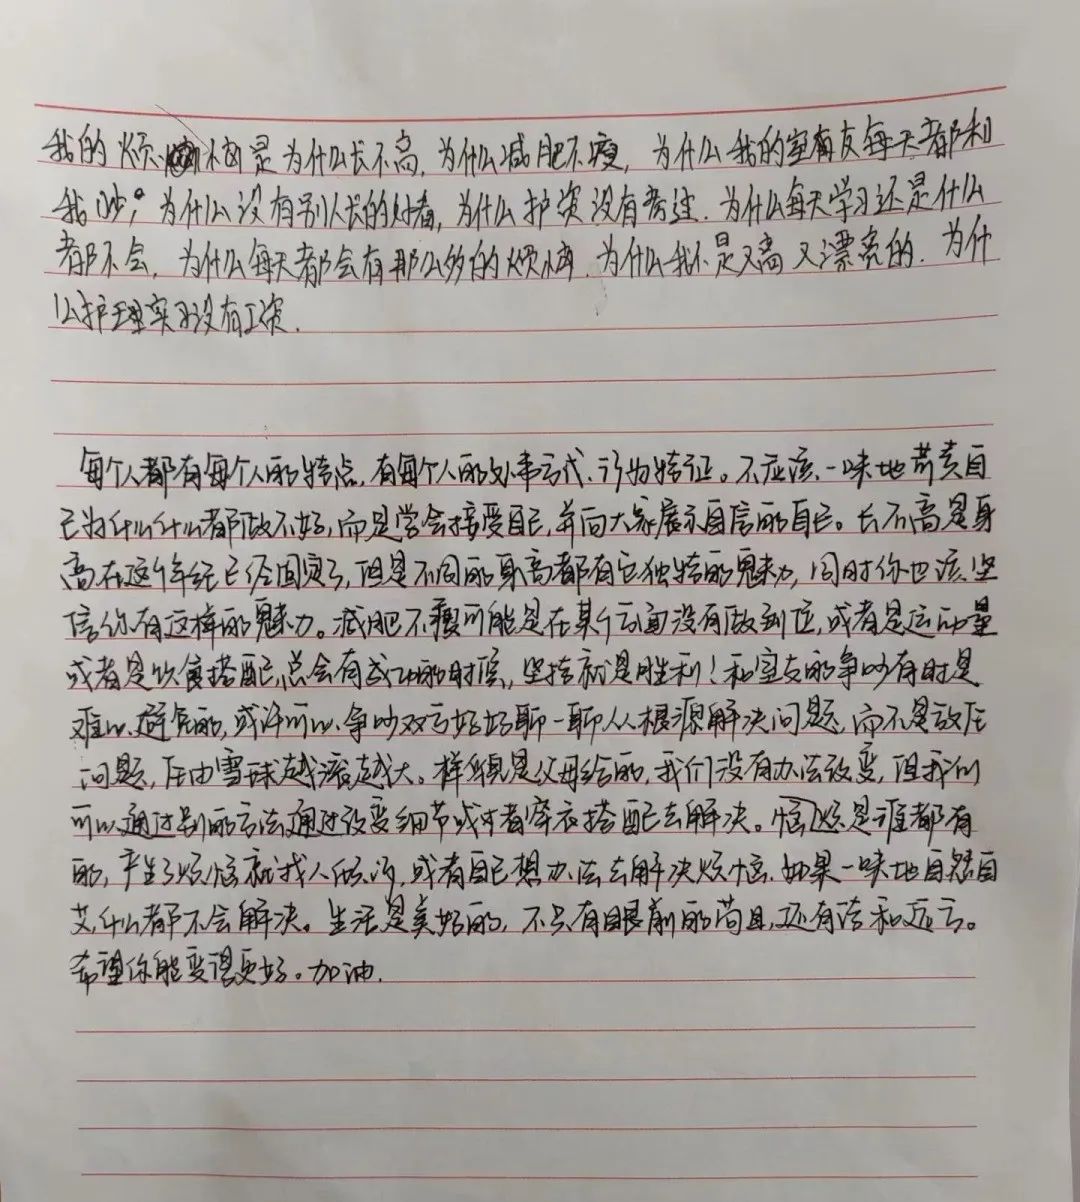 我的烦恼是为什么长不高,为什么减肥不瘦,为什么我的室友每天都和
我吵,为什么没有别人长的好看,为什么护资没有考过.为什么每天学习还是什么
都不会,为什么每天都会有那么多的烦恼.为什么我不是又高又漂亮的.为什
么护理实习没有工资.
每个人都有每个人的特点,有每个人的处事方式、行为特征。不应该一味地苛责自
己为什么什么都做不好,而是学会接受自己,并向大家展示自信的自己。长不高是身
高在这个年纪已经固定了,但是不同的身高都有它独特的魅力,同时你也该坚
信你有这样的魅力。减肥不瘦可能是在某个方面没有做到位,或者是运动量
或者是饮食搭配,总会有成功的时候,坚持就是胜利!和室友的争吵有时是
难以避免的,或许可以争吵双方好好聊一聊从根源解决问题,而不是放任
问题,任由雪球越滚越大。样貌是父母给的,我们没有办法改变,但我们
可以通过别的方法通过改变细节或者穿衣搭配去解决。烦恼是谁都有
的,产生了烦恼就找人倾诉,或者自己想办法去解决烦恼.如果一味地自怨自
艾,什么都不会解决。生活是美好的,不只有眼前的苟且,还有诗和远方。
希望你能变得更好。加油.